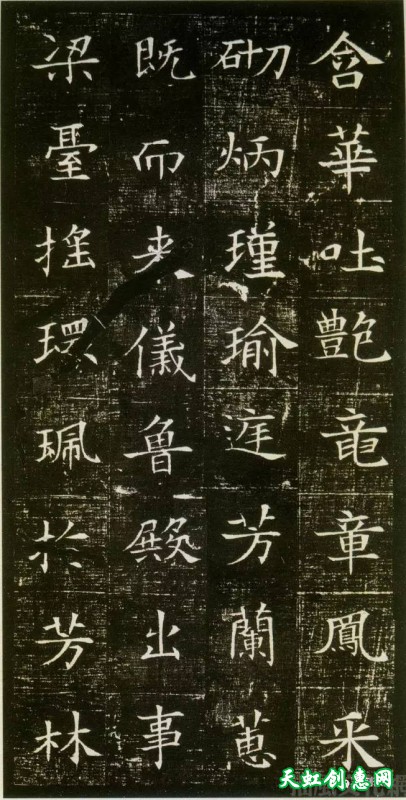 含華吐艷竜章鳳采
砌炳瑾瑜庭芳蘭蕙
既而来儀魯殿出事
梁臺搖環珮於芳林
天虹创惠网